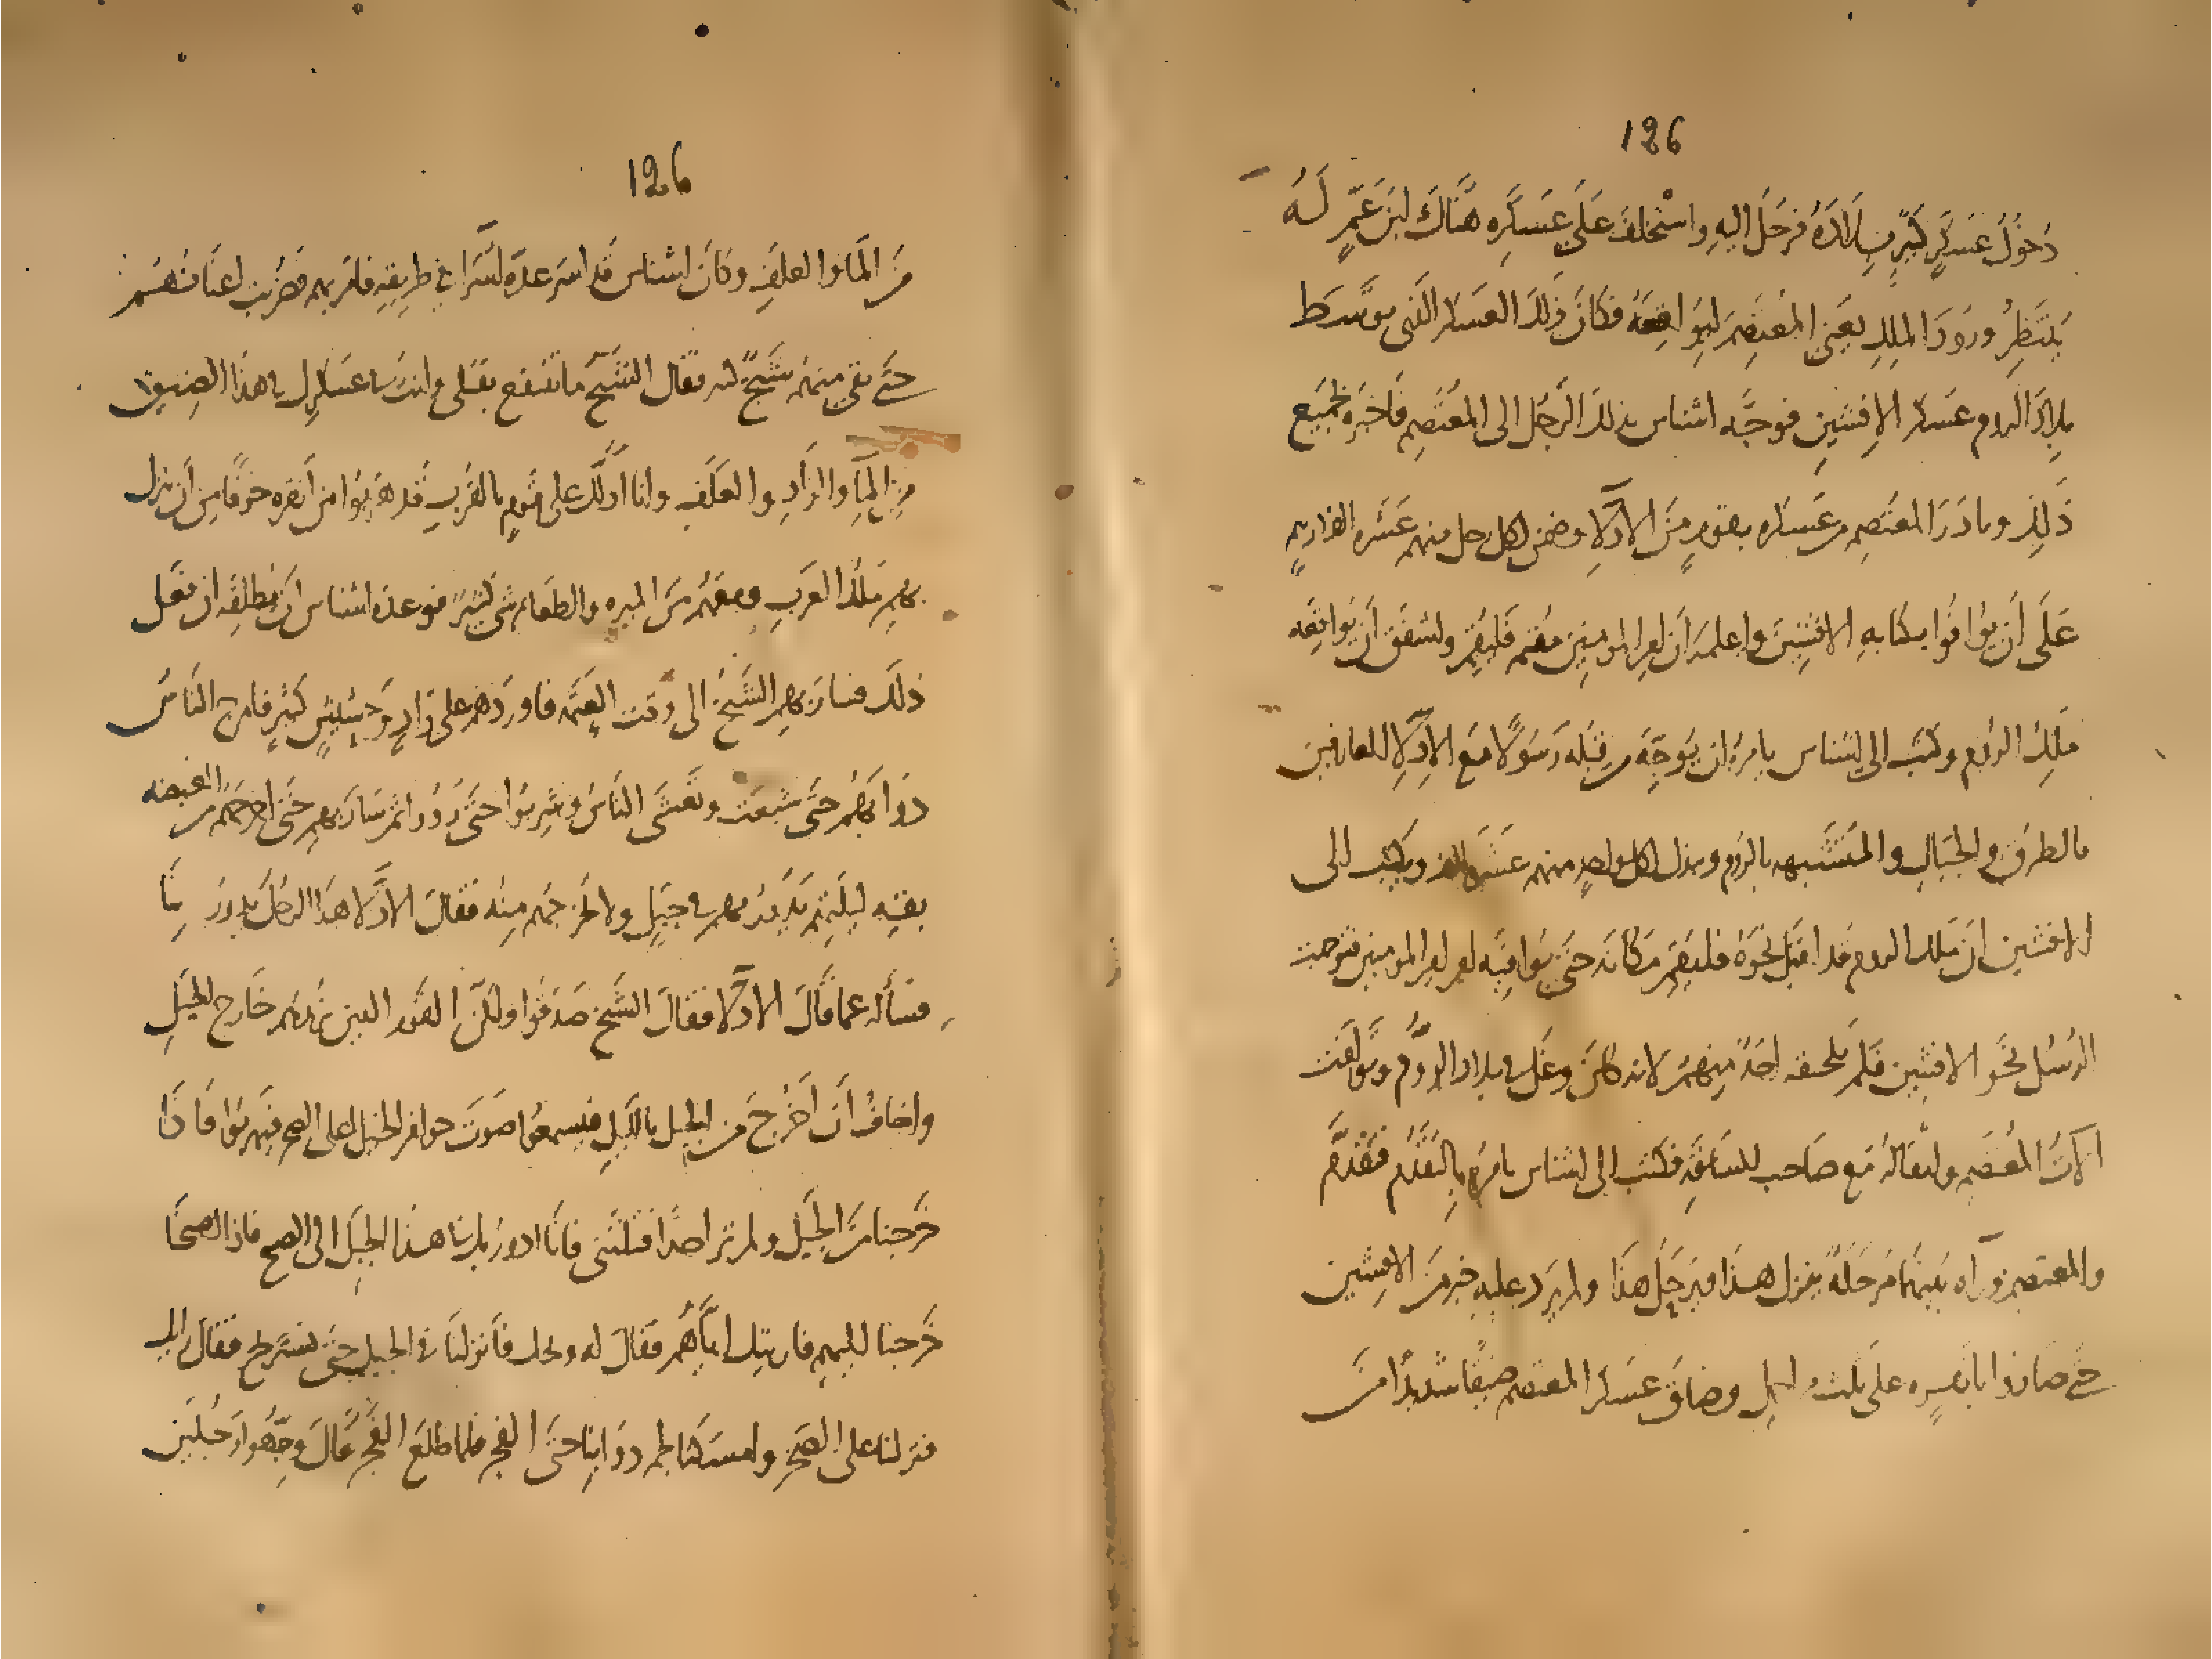 126
دُخُولُ عَسكَرٍ كَبيرٍ بِبِلَادِهِ فرَحَلَ اليهِ واسْتخلف عَلَى عَسكَرِه هنَاكَ ابنَ عَمٍّ لَهُ
يَنتَظِرُ ورُودَ الملِكِ يعَني المعُتَصِم ليُوَاقِعَهُ فكَانَ ذَلكَ العَسكر الذَى توسَّط
بلادَ الروم عسَكر الافشينِ فوجَّه اشناس بذلكَ الرّجُل الى المعُتَصِم فاخبَرَه بجميَع
ذَلِكَ وبَادَرَ المعُتَصِم من عَسكره بقومٍ منَ الادلّاِ وضَمن لكل رجل منهم عَشره الف درهمٍ
عَلَى أن يوُافُوا بكتابهِ الافشِينَ واعلمَه أن امير المومنِين مقُيم فليُقم واشفَق أن يُواقِعَه
مَلِكُ الروُم وكتَب الى اشناس يامرهُ ان يوَجّه من قبَله رَسُولًا مَع الادِلّا العارفين
بالطرق والجبَالِ والمتَشَبهه بالروم وبذل لكل واحدٍ منهم عشَره الف ويكتب الى
الافشين انَ مَلك الروم قدا قبَل نحوَهُ فليُقم مكانه حتىَ يوافيَه امر امير المومنين فتوجهت
الرسُل نحَو الافشين فلم يلحقه احَدٌ منِهُم لانه كانَ وغَل في بلاد الروُم وتوافَت
الآتُ المعُتَصم واثقالهُ مع صَاحب السَاقَةِ فكتب الى اشناس يامرُه بِالتقَدُم فتقَدَّم
والمعتصم ورَآه بَينهُمَا مرَحَلَةً ينزل هَذا ويَرحَل هَذَا ولم يَرد عليه خبر منَ الافشين
حتى صَارُوا بانقره على ثلث مراحل وضاقَ عَسكر المعتصم ضيقًا شديدًا منَ
126
مَن المَا والعلَفِ وكانَ اشناس قد اسر عدّة اسَرا في طريقِهِ فامر بهم فضُربت اعنَاقهُم
حتَّى بقي منِهم شيَخٌ كبير فقال الشَيخُ ما تنتفع بقتلي وانت وعسكرك في هذا الضِيقِ
مِنَ المآِ والزَادِ والعَلَفِ وانا ادلّك على قوٍم بالقُربِ قَد هَربُوا من أنقره خوفًا مِن أن ينزل
بهِم مَلكُ العَربِ ومعَهُم منَ الميره والطعَام شي كثيرٌ فوعده اشناس ان يُطلِقَه ان فعَل
ذلكَ فسارَ بهم الشَيخُ الى وقت العَتَمه فاوردَهم على وَادٍ وحَشِيشٍ كثيرٍ فامرج الناسُ
دوَابَهُم حَتىَ شبعَت وتعَشَى الناسُ وشربُوا حتَى رَوُوا ثم سَارَ بهم حَتى اخرجَهُم من الغيضه
بقيه ليلَتهِم يَدوُر بهم في جَبلٍ ولا يخرجهُم منِهُ فقالَ الادلّا هَذا الرجُل يدوُر بنَا
فسَأله عما قَالَ الادلّا فقالَ الشَيخ صَدقوُا ولكن القَوم الذين تريدهُم خَارج الجبَلِ
واخافُ أن اخَرُجَ منَ الجبل بالليلِ فيسمعُوا صَوتَ حوافر الخيل على الصخر فيَهربوا فاذَا
خَرجنا منَ الجَبل ولم تَر احدًا قتلتَني فانا ادور بك هَذا الجبَل الى الصبح فاذا اصبحَنا
خَرجنا اليهم فاريتك ايّاهُم فقالَ له ويحك فأنزلنا في الجبل حتى نسترَيح فقال رايك
فنزلنا على الصَخر وامسَكنا لجم دوَابنا حتىَ الفجر فلما طلَع الفَجر قَالَ وجِّهُوا رجُليَن